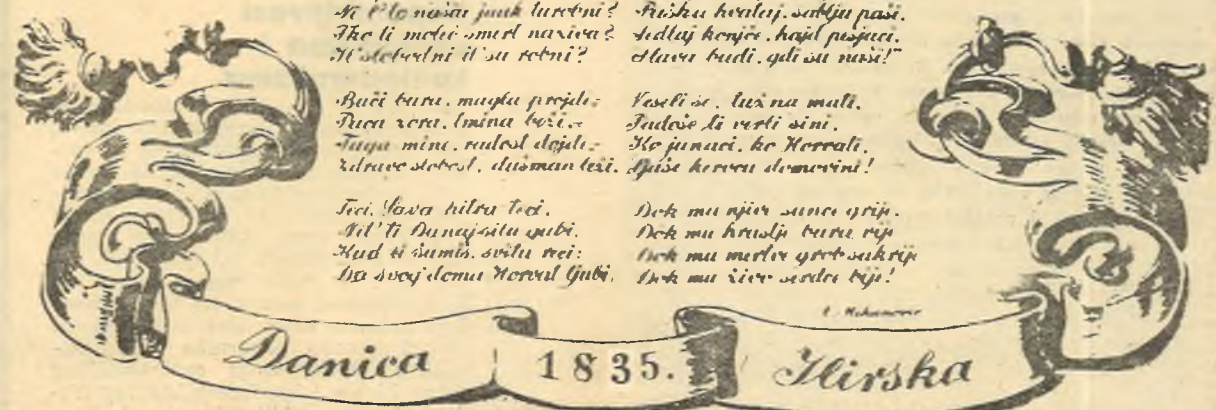 Ni l' to naša jauk turobni?
Tko li moleć smert naziva?
Il' slobodni il' su robni?
Buči bura, magla projde,
Puca zora, tmina běži,
Tuga mine, radost dojde,
Zdravo slobost, dušman leži.
Teci, Sava hitra teci,
Nit' ti Dunaj silu gubi,
Kud li šumiš, svitu reci:
Da svog' domu Horvat ljubi,
Pušku hvataj, sablju paši,
Sedlaj konjče, hajd pěšjaci,
Slava budi, gdi su naši!"
Veseli se, tužna mati,
Padoše ti verli sini,
Ko junaci, ko Horvati,
Ljaše kervcu domovini!
Dok mu njive sunce grije,
Dok mu hrastje bura vije
Dok mu mertve grob sakrije
Dok mu živo serdce bije!
Danica
1835.
Ilirska